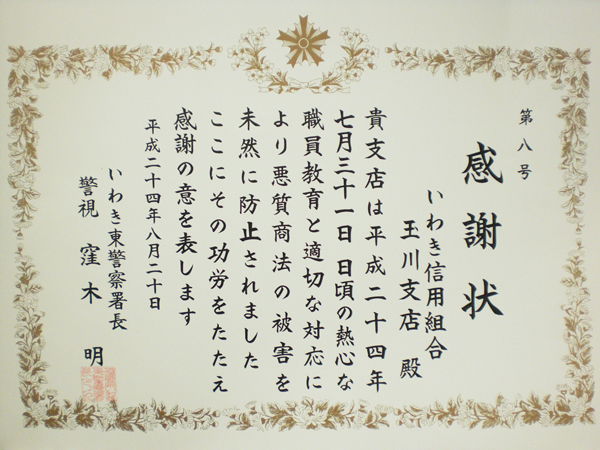 第八号
感謝状
いわき信用組合
玉川支店 殿
貴支店は平成二十四年
七月三十一日 日頃の熱心な
職員教育と適切な対応に
より悪質商法の被害を
未然に防止されました
ここにその功労をたたえ
感謝の意を表します
平成二十四年八月二十日
いわき東警察署長
警視 窪木 明